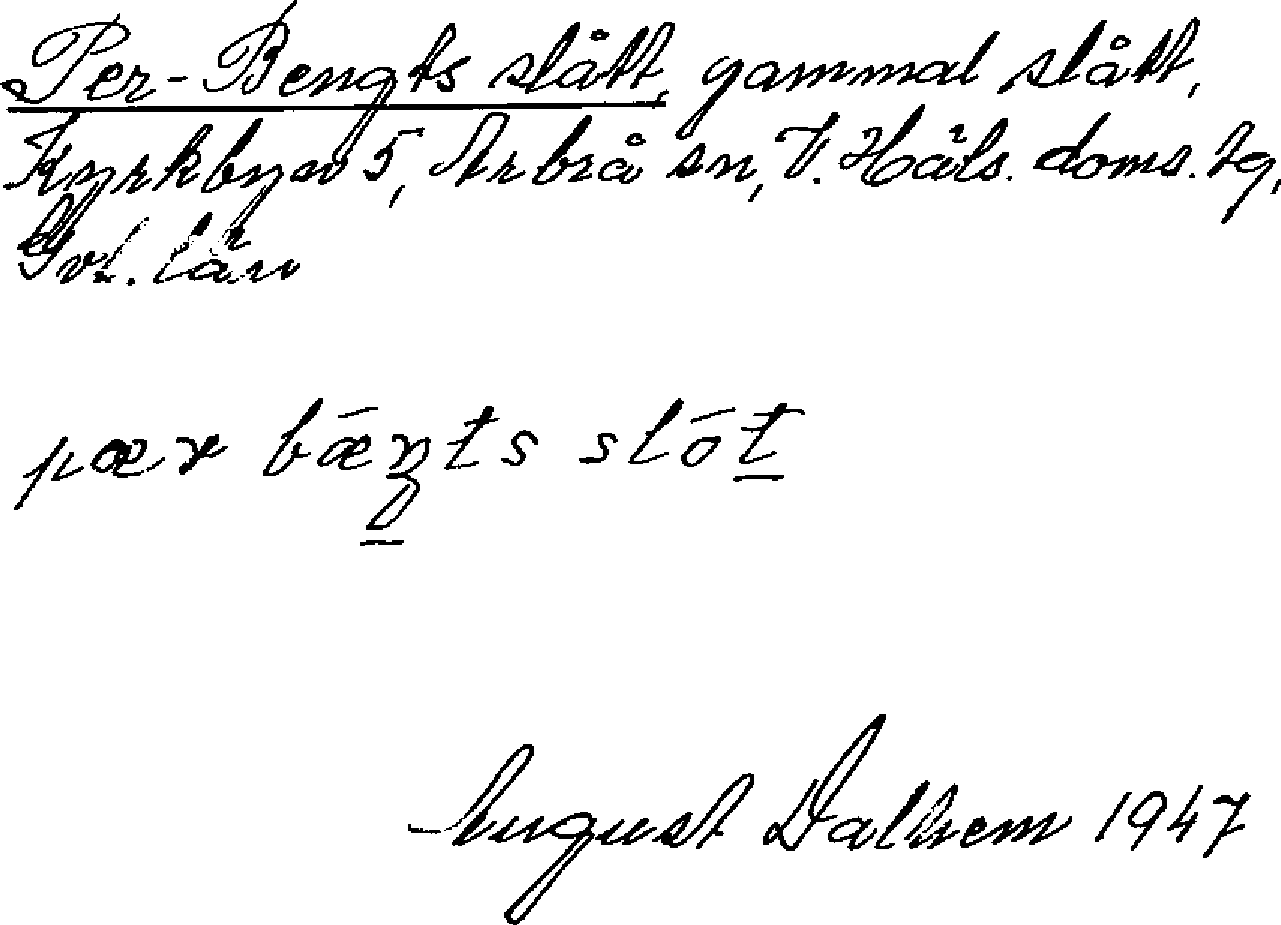 Per-Bengts slått, gammal slått,
Kyrkbyn 5, Arbrå sn, V. Häls. doms. tg,
Gvl. län
pær bǽŋts slót
August Dalhem 1947